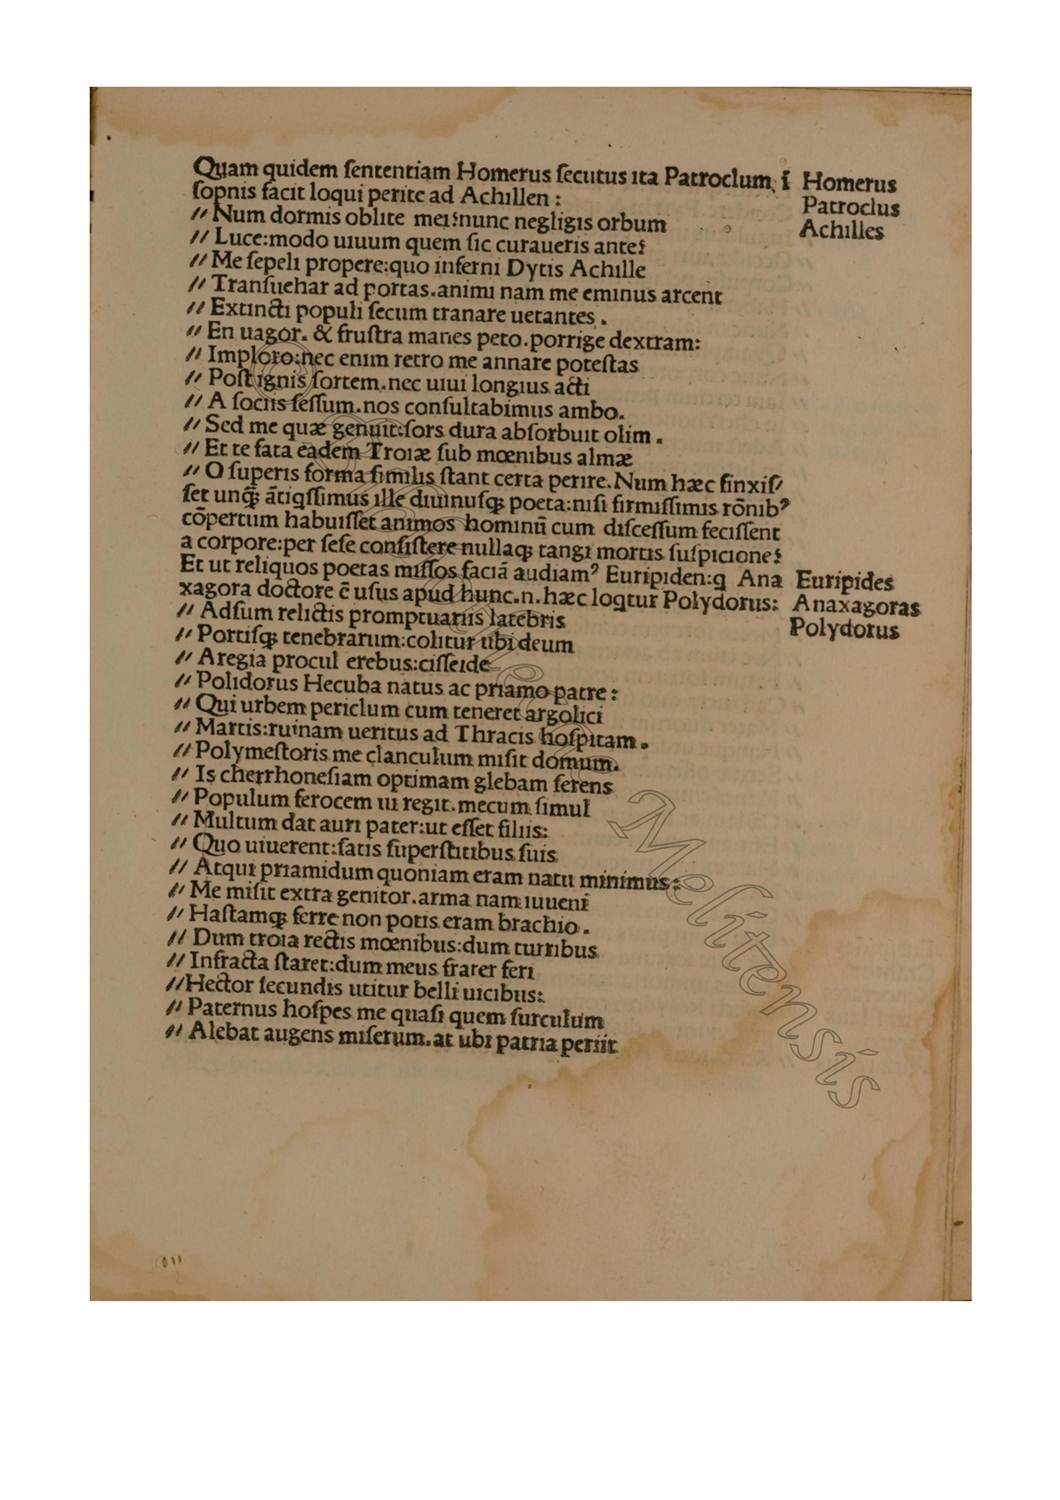 Quam quidem ſententiam Homerus ſecutus ita Patroclum, ī Homerus
ſopnis facit loqui perite ad Achillen :
Patroclus
// Num dormis oblite mei⸵nunc negligis orbum
Achilles
// Luce:modo uiuum quem ſic curaueris ante⸵
// Me ſepeli propere:quo inferni Dytis Achille
// Tranſuehar ad portas.animi nam me eminus arcent
// Extincti populi ſecum tranare uetantes .
// En uagor. & fruſtra manes peto.porrige dextram:
// Imploro:nec enim retro me annare poteſtas
// Poſt ignis ſortem.nec uiui longius acti
// A ſociis ſeſſum.nos conſultabimus ambo.
// Sed me quæ genuit:ſors dura abſorbuit olim .
// Et te fata eadem Troiæ ſub mœnibus almæ
// O ſuperis forma ſimilis ſtant certa perire. Num hæc finxiſ/
ſet unq̄ ātiqſſimus ille diuinuſqꝫ poeta:niſi firmiſſimis rōnibꝰ
cōpertum habuiſſet animos hominū cum diſceſſum feciſſent
a corpore:per ſeſe conſiſtere nullaqꝫ tangi mortis ſuſpicione⸵
Et ut reliquos poetas miſſos faciā audiamꝰ Euripiden:q Ana Euripides
xagora doctore ē uſus apud hunc.n.hæc loqtur Polydorus: Anaxagoras
// Adſum relictis promptuariis latebris
Polydorus
// Portiſqꝫ tenebrarum:colitur ubi deum
// Aregia procul erebus:ciſſeide
// Polidorus Hecuba natus ac priamo patre :
// Qui urbem periclum cum teneret argolici
// Martis:ruinam ueritus ad Thracis hoſpitam .
// Polymeſtoris me clanculum miſit domum.
// Is cherrhoneſiam optimam glebam ferens
// Populum ferocem ui regit.mecum ſimul
// Multum dat auri pater:ut eſſet filiis:
// Quo uiuerent:fatis ſuperſtitibus ſuis
// Atqui priamidum quoniam eram natu minimus :
// Me miſit extra genitor.arma nam iuueni
// Haſtamqꝫ ferre non potis eram brachio .
// Dum troia rectis mœnibus:dum turribus
// Infracta ſtaret:dum meus frater feri
//Hector ſecundis utitur belli uicibus:
// Paternus hoſpes me quaſi quem ſurculum
// Alebat augens miſerum.at ubi patria periit
Melitensis